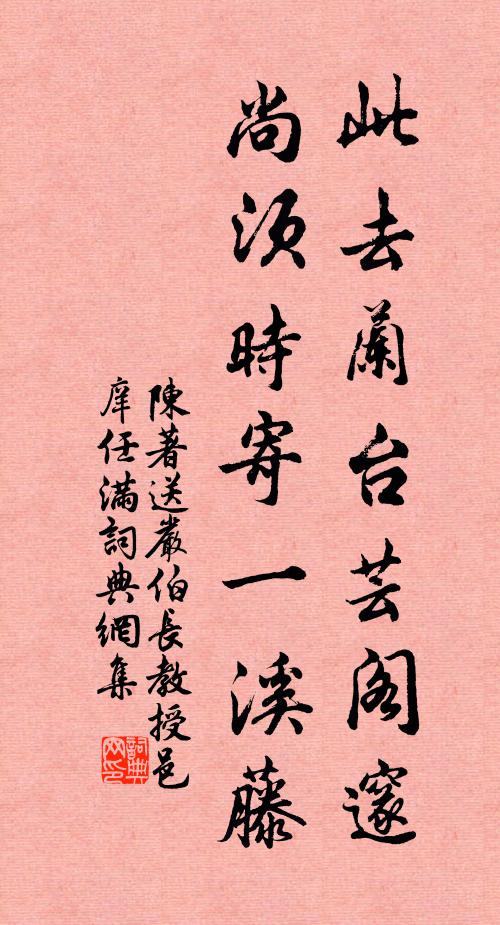 此去蘭台芸阁邃
尚须時寄一溪藤
陳著送嚴伯長教授邑
庠任滿詞典網集
詞典网印